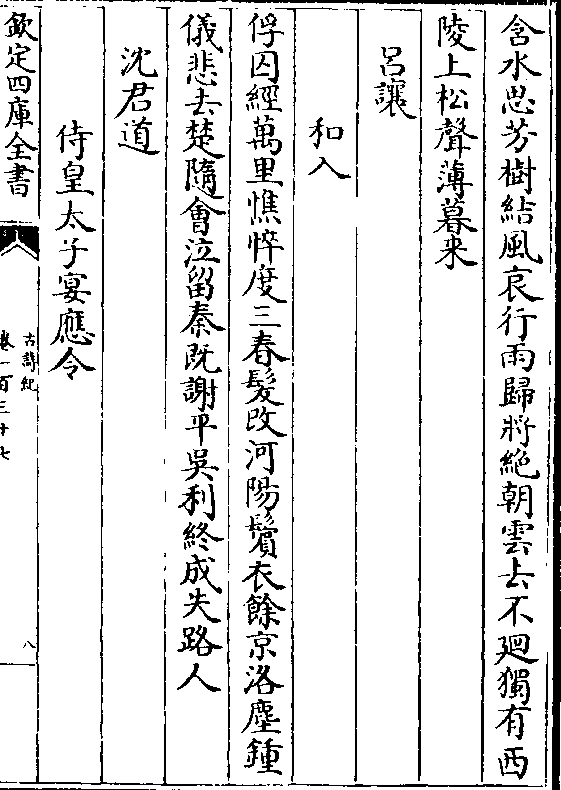 含水思芳樹結風哀行雨歸將絶朝雲去不廻獨有西
陵上松聲薄暮来
吕讓
和入
俘囚經萬里憔悴度三春髪改河陽鬢衣餘京洛塵鍾
儀悲去楚隨會泣留秦既謝平吳利終成失路人
沈君道
侍皇太子宴應令
欽定四庫全書
古詩紀
卷一百三十七
八